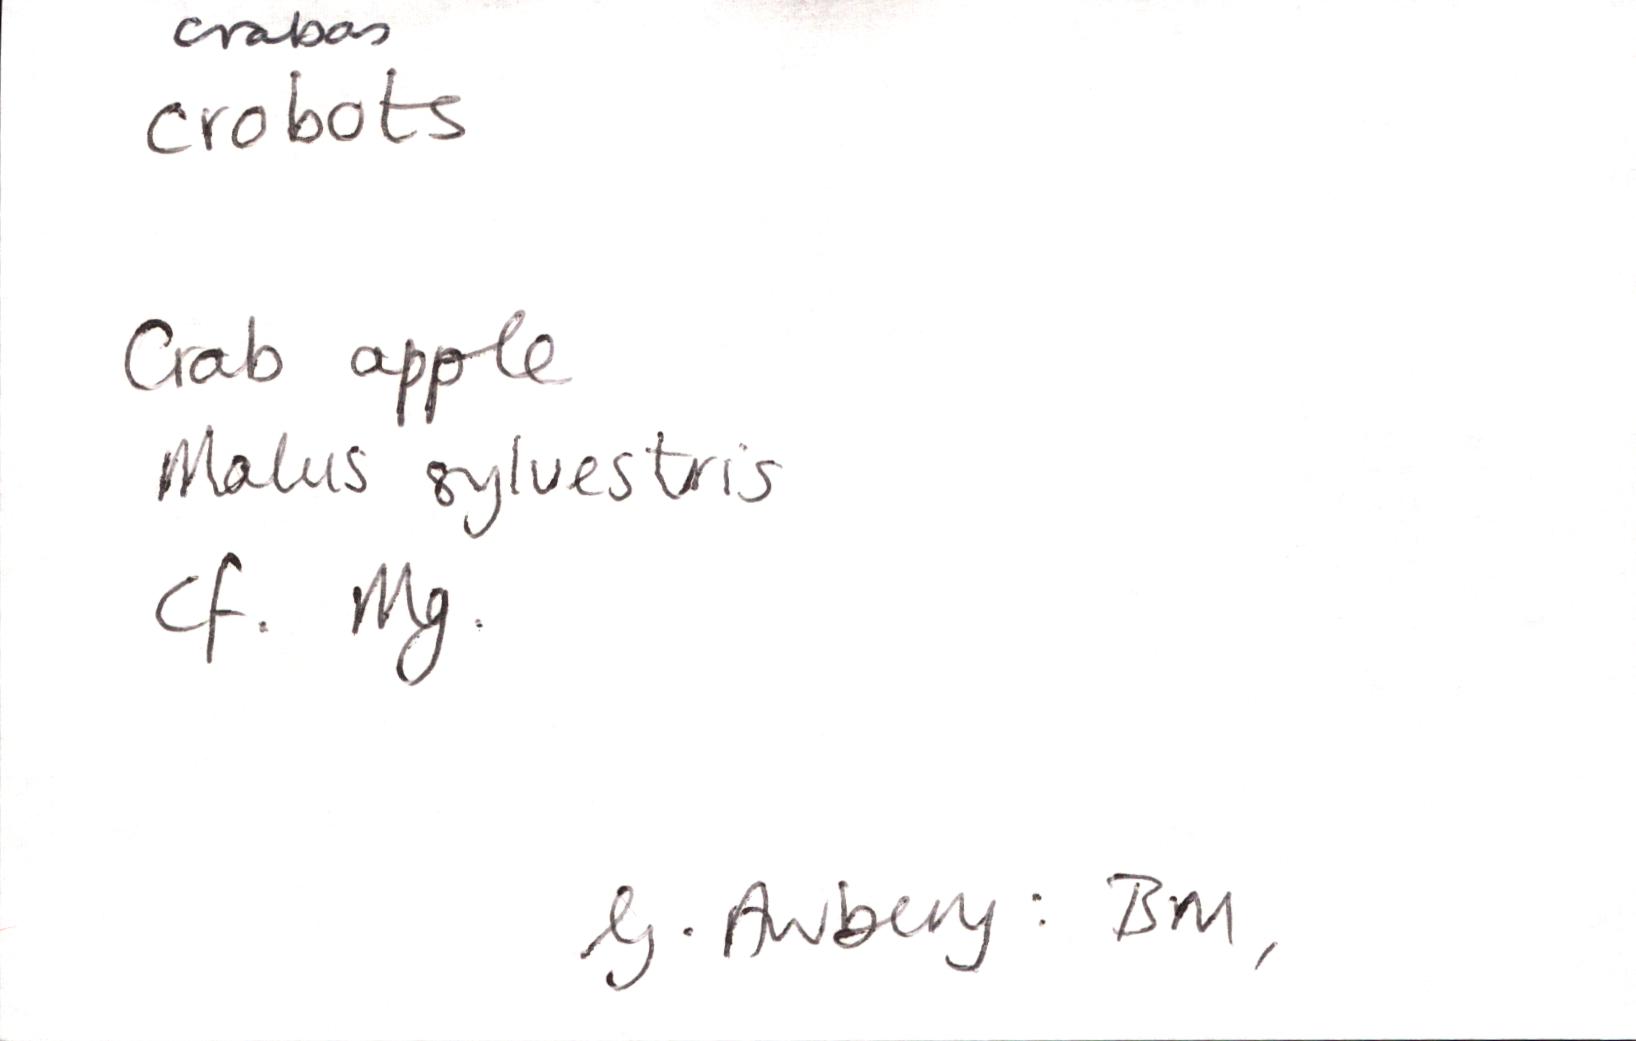 crabas
crobots
Crab apple
Malus sylvestris
Cf. Mg.
G. Awbery: BM,